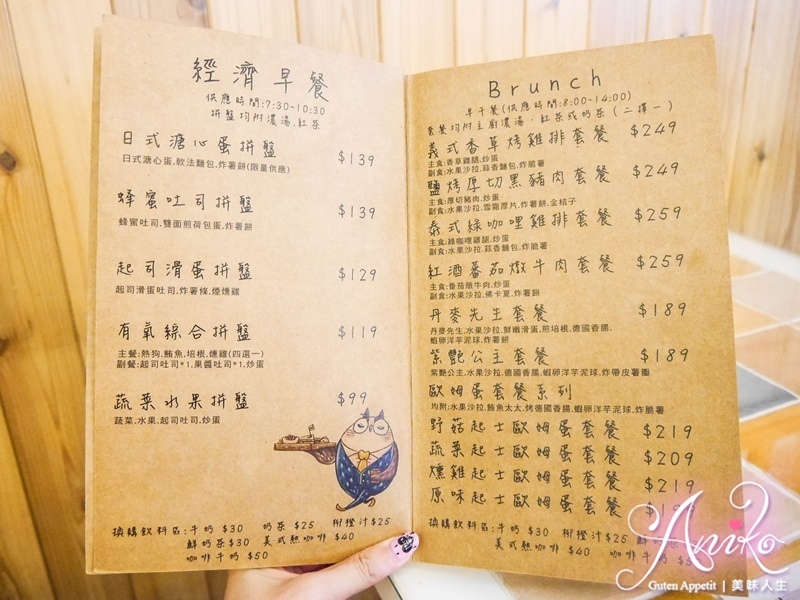 經濟早餐
供應時間:7:30-10:30
拼盤均附濃湯.紅茶
日式溏心蛋拼盤 $139
日式溏心蛋,軟法麵包,炸薯餅(限量供應)
蜂蜜吐司拼盤 $139
蜂蜜吐司,雙面煎荷包蛋,炸薯餅
起司滑蛋拼盤 $129
起司滑蛋吐司,炸薯條,煙燻雞
有氧綜合拼盤 $119
主餐:熱狗,鮪魚,培根,燻雞(四選一)
副餐:起司吐司*1,果醬吐司*1,炒蛋
蔬菜水果拼盤 $99
蔬菜,水果,起司吐司,炒蛋
換購飲料區:牛奶$30 奶茶$25 柳橙汁$25
鮮奶茶$30 美式熱咖啡$40
咖啡牛奶$50
Brunch
早午餐(供應時間:8:00-14:00)
套餐均附主廚濃湯.紅茶或奶茶(二擇一)
義式香草烤雞排套餐 $249
主食:香草雞腿,炒蛋
副食:水果沙拉,蒜香麵包,炸脆薯
鹽烤厚切黑豬肉套餐 $249
主食:厚切豬肉,炒蛋
副食:水果沙拉,雪霜厚片,炸薯餅,金桔子
泰式綠咖哩雞排套餐 $259
主食:綠咖哩雞腿,炒蛋
副食:水果沙拉,蒜香麵包,炸脆薯
紅酒蕃茄燉牛肉套餐 $259
主食:番茄燉牛肉,炒蛋
副食:水果沙拉,佛卡夏,炸薯餅
丹麥先生套餐 $189
丹麥先生,水果沙拉,鮮嫩滑蛋,煎培根,德國香腸,
蝦卵洋芋泥球,炸薯餅
紫艷公主套餐 $189
紫艷公主,水果沙拉,德國香腸,蝦卵洋芋泥球,炸帶皮薯瓣
歐姆蛋套餐系列
均附:水果沙拉,鮪魚太太,烤德國香腸,蝦卵洋芋泥球,炸脆薯
野菇起士歐姆蛋套餐 $219
蔬菜起士歐姆蛋套餐 $209
燻雞起士歐姆蛋套餐 $219
原味起士歐姆蛋套餐
換購飲料區:牛奶$30 柳橙汁$25
美式熱咖啡$40 咖啡牛奶
Aniko
Guten Appetit | 美味人生